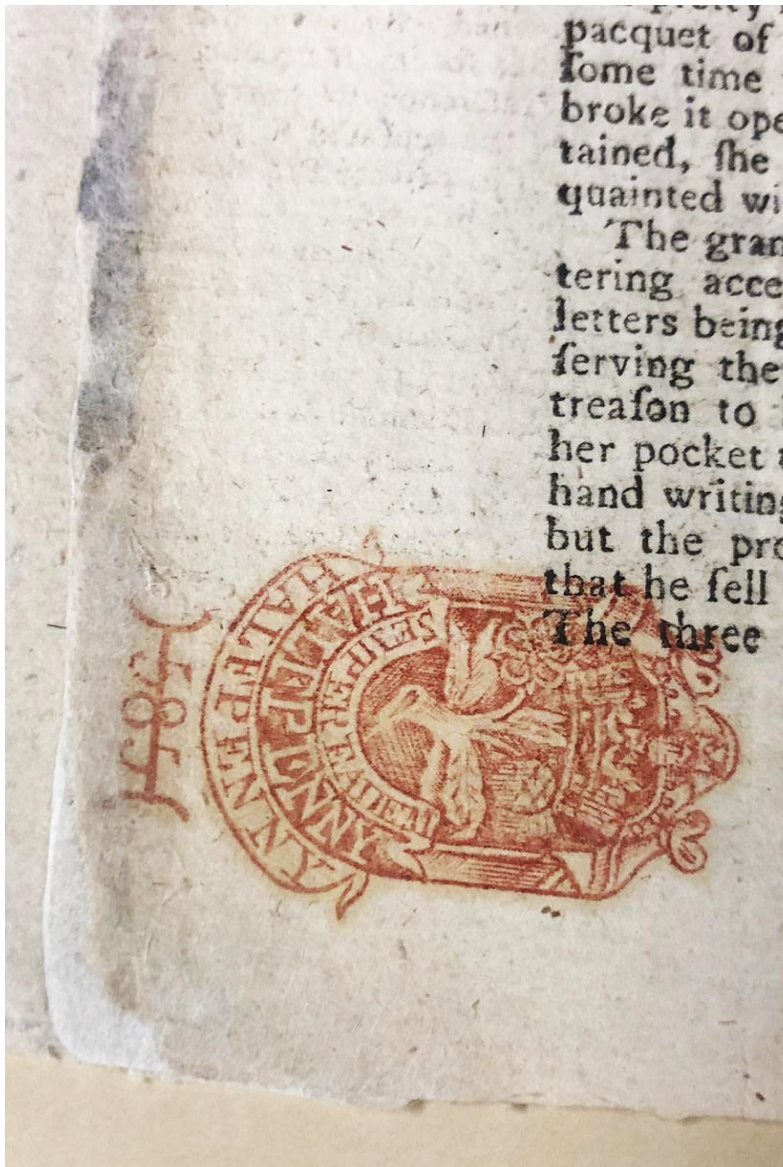 pacquet of
ſome time
broke it ope
tained, ſhe
quainted wi
The gran
tering acce
letters being
ſerving the
treaſon to
her pocket
hand writing
but the pro
that he fell
The three
HALF PENNY
HALF PENNY
SEMPER EADEM